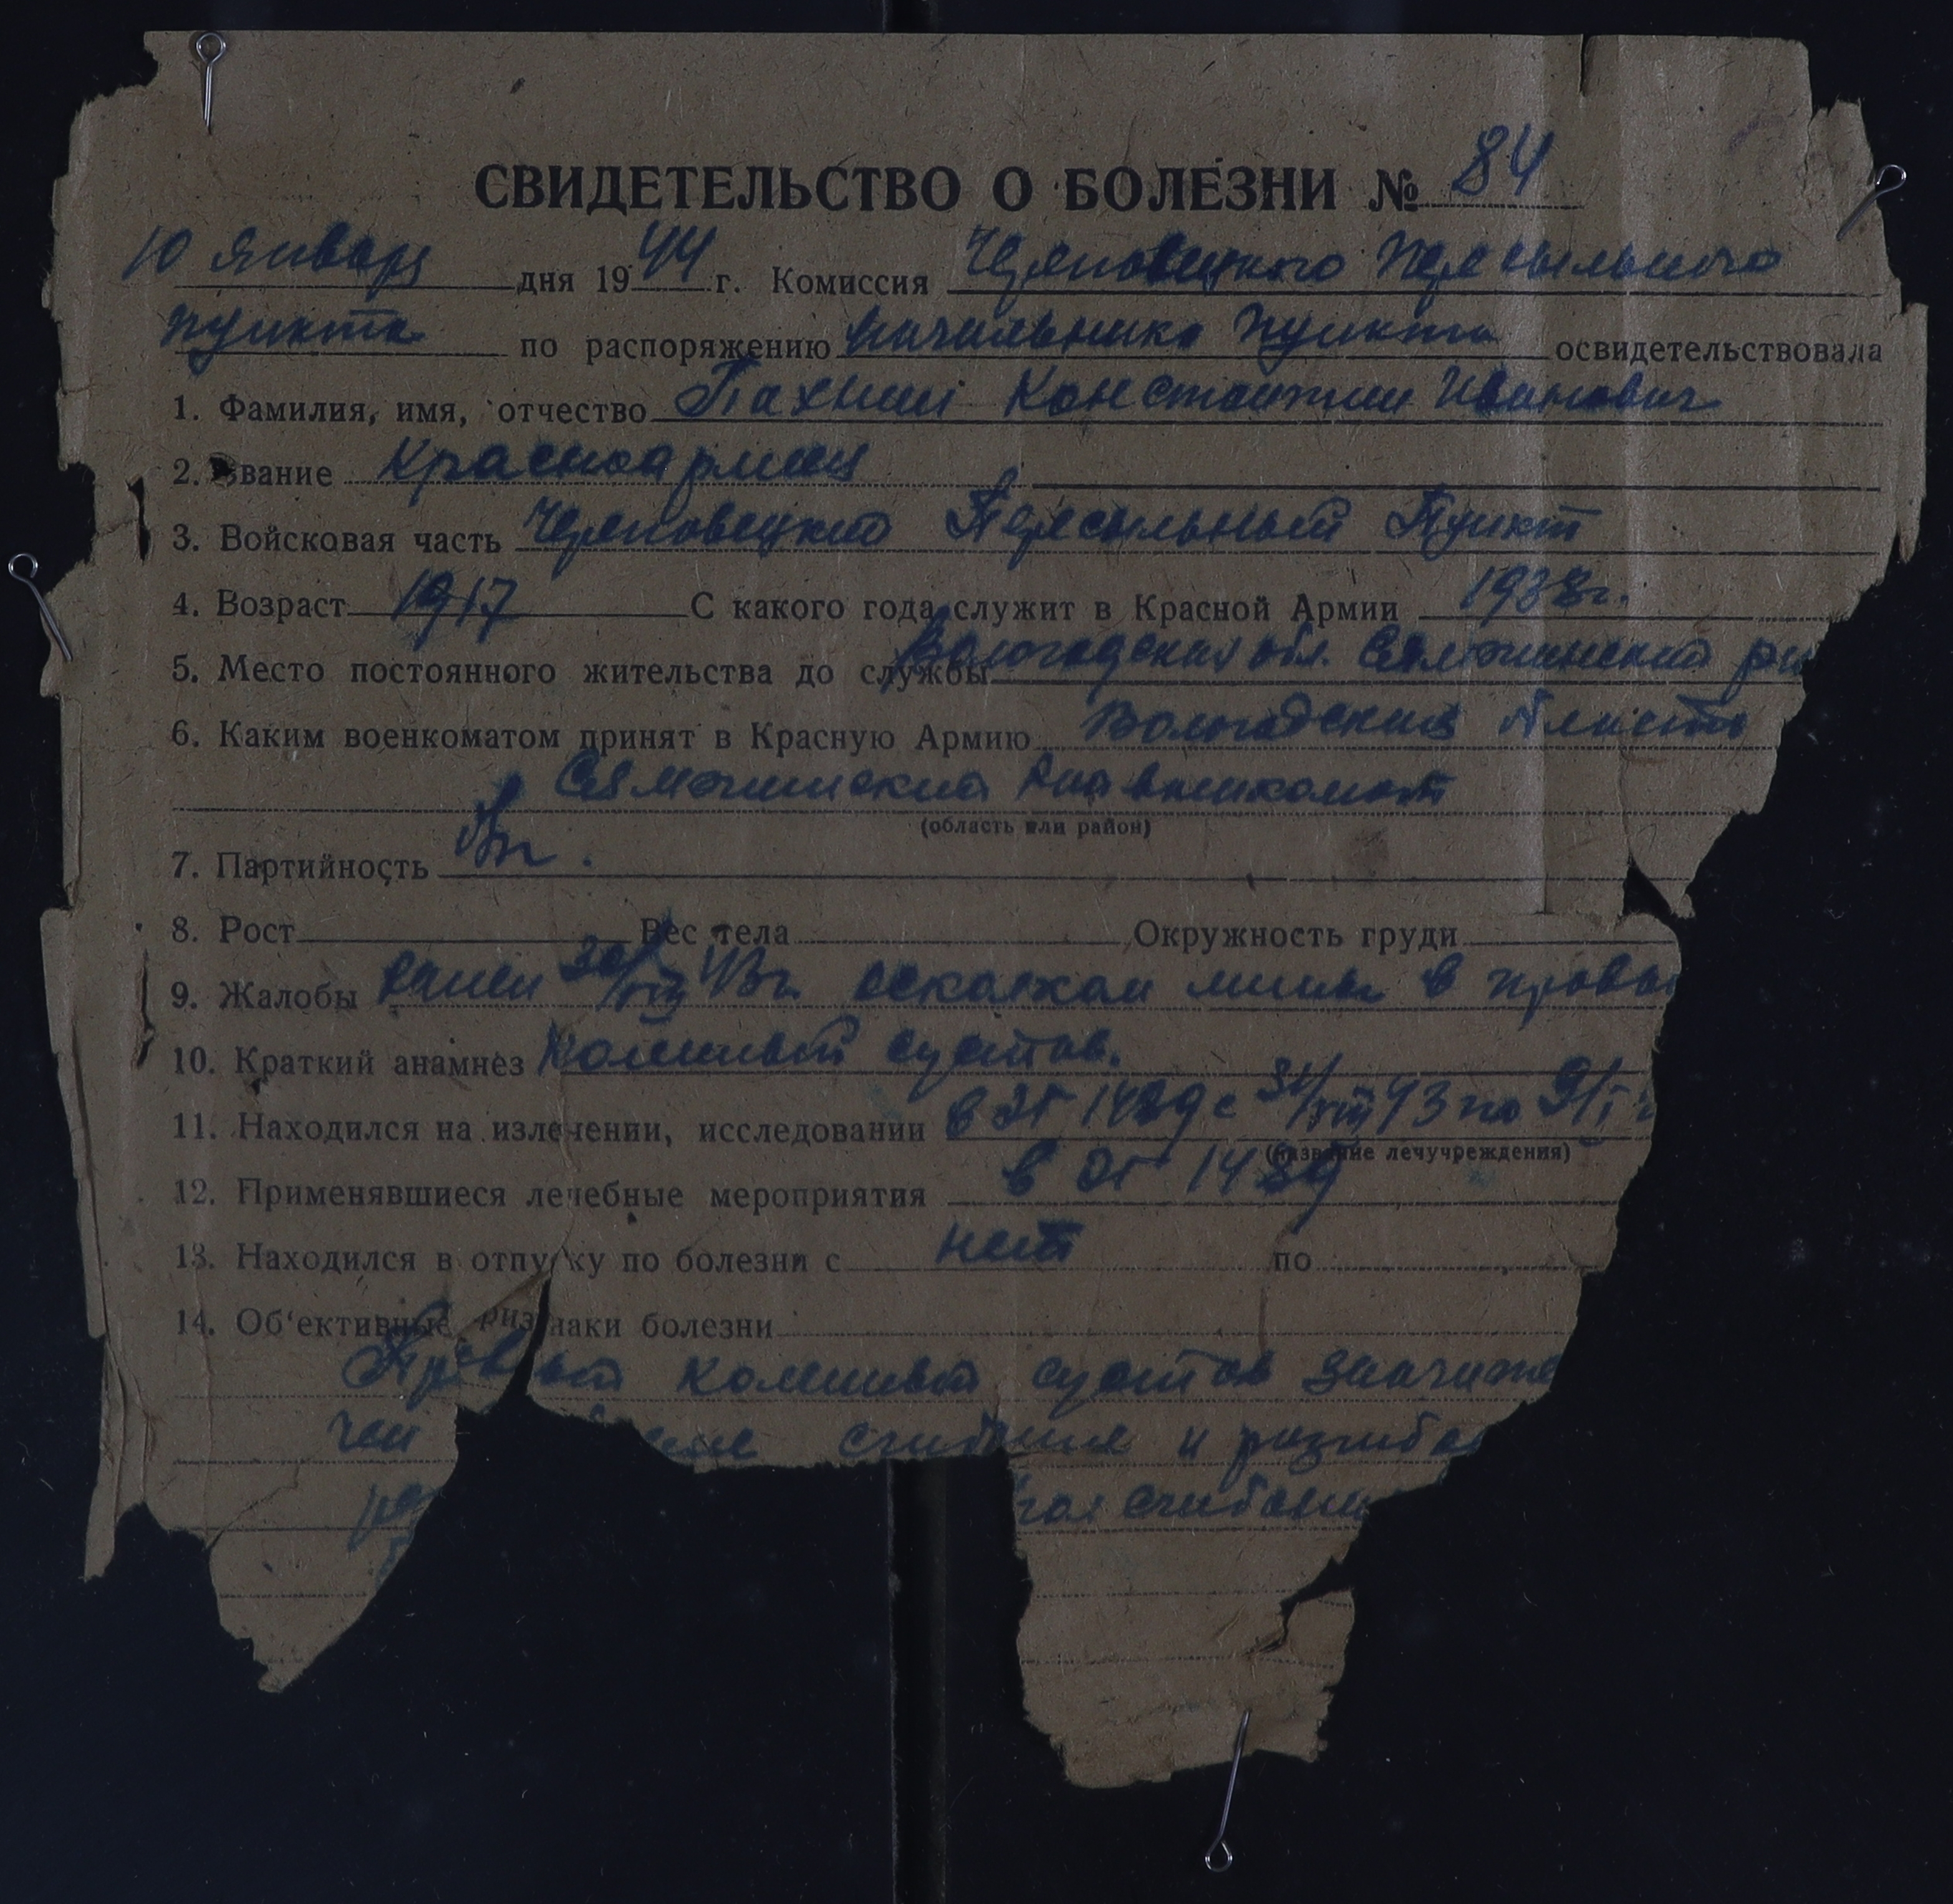 СВИДЕТЕЛЬСТВО О БОЛЕЗНИ № 84
10 января дня 1944 г. Комиссия Череповецкого Пересыльного
пункта по распоряжению начальника Пункта освидетельствовала
1. Фамилия, имя, отчество Пахнин Константин Иванович
2. Звание Красноармеец
3. Войсковая часть Череповецкий Пересыльный Пункт
4. Возраст 1917 С какого года служит в Красной Армии 1938г.
5. Место постоянного жительства до службы Вологодская обл. Сямженский
6. Каким военкоматом принят в Красную Армию Вологодская
Сямженский военкомат
(область или район)
7. Партийность
8. Рост Вес тела Окружность груди
9. Жалобы Ранен 30/VIII 43г. осколком мины в правы
10. Краткий анамнез Коленный сустав.
11. Находился на излечении, исследовании в ЭГ 1489 с 31/VIII 43 по 9/I
(название лечучреждения)
12. Применявшиеся лечебные мероприятия в ЭГ 1489
13. Находился в отпуску по болезни с нет по
14. Об'ективные признаки болезни
Правый коленный сустав
чен сгибание и разгиба
сгибани